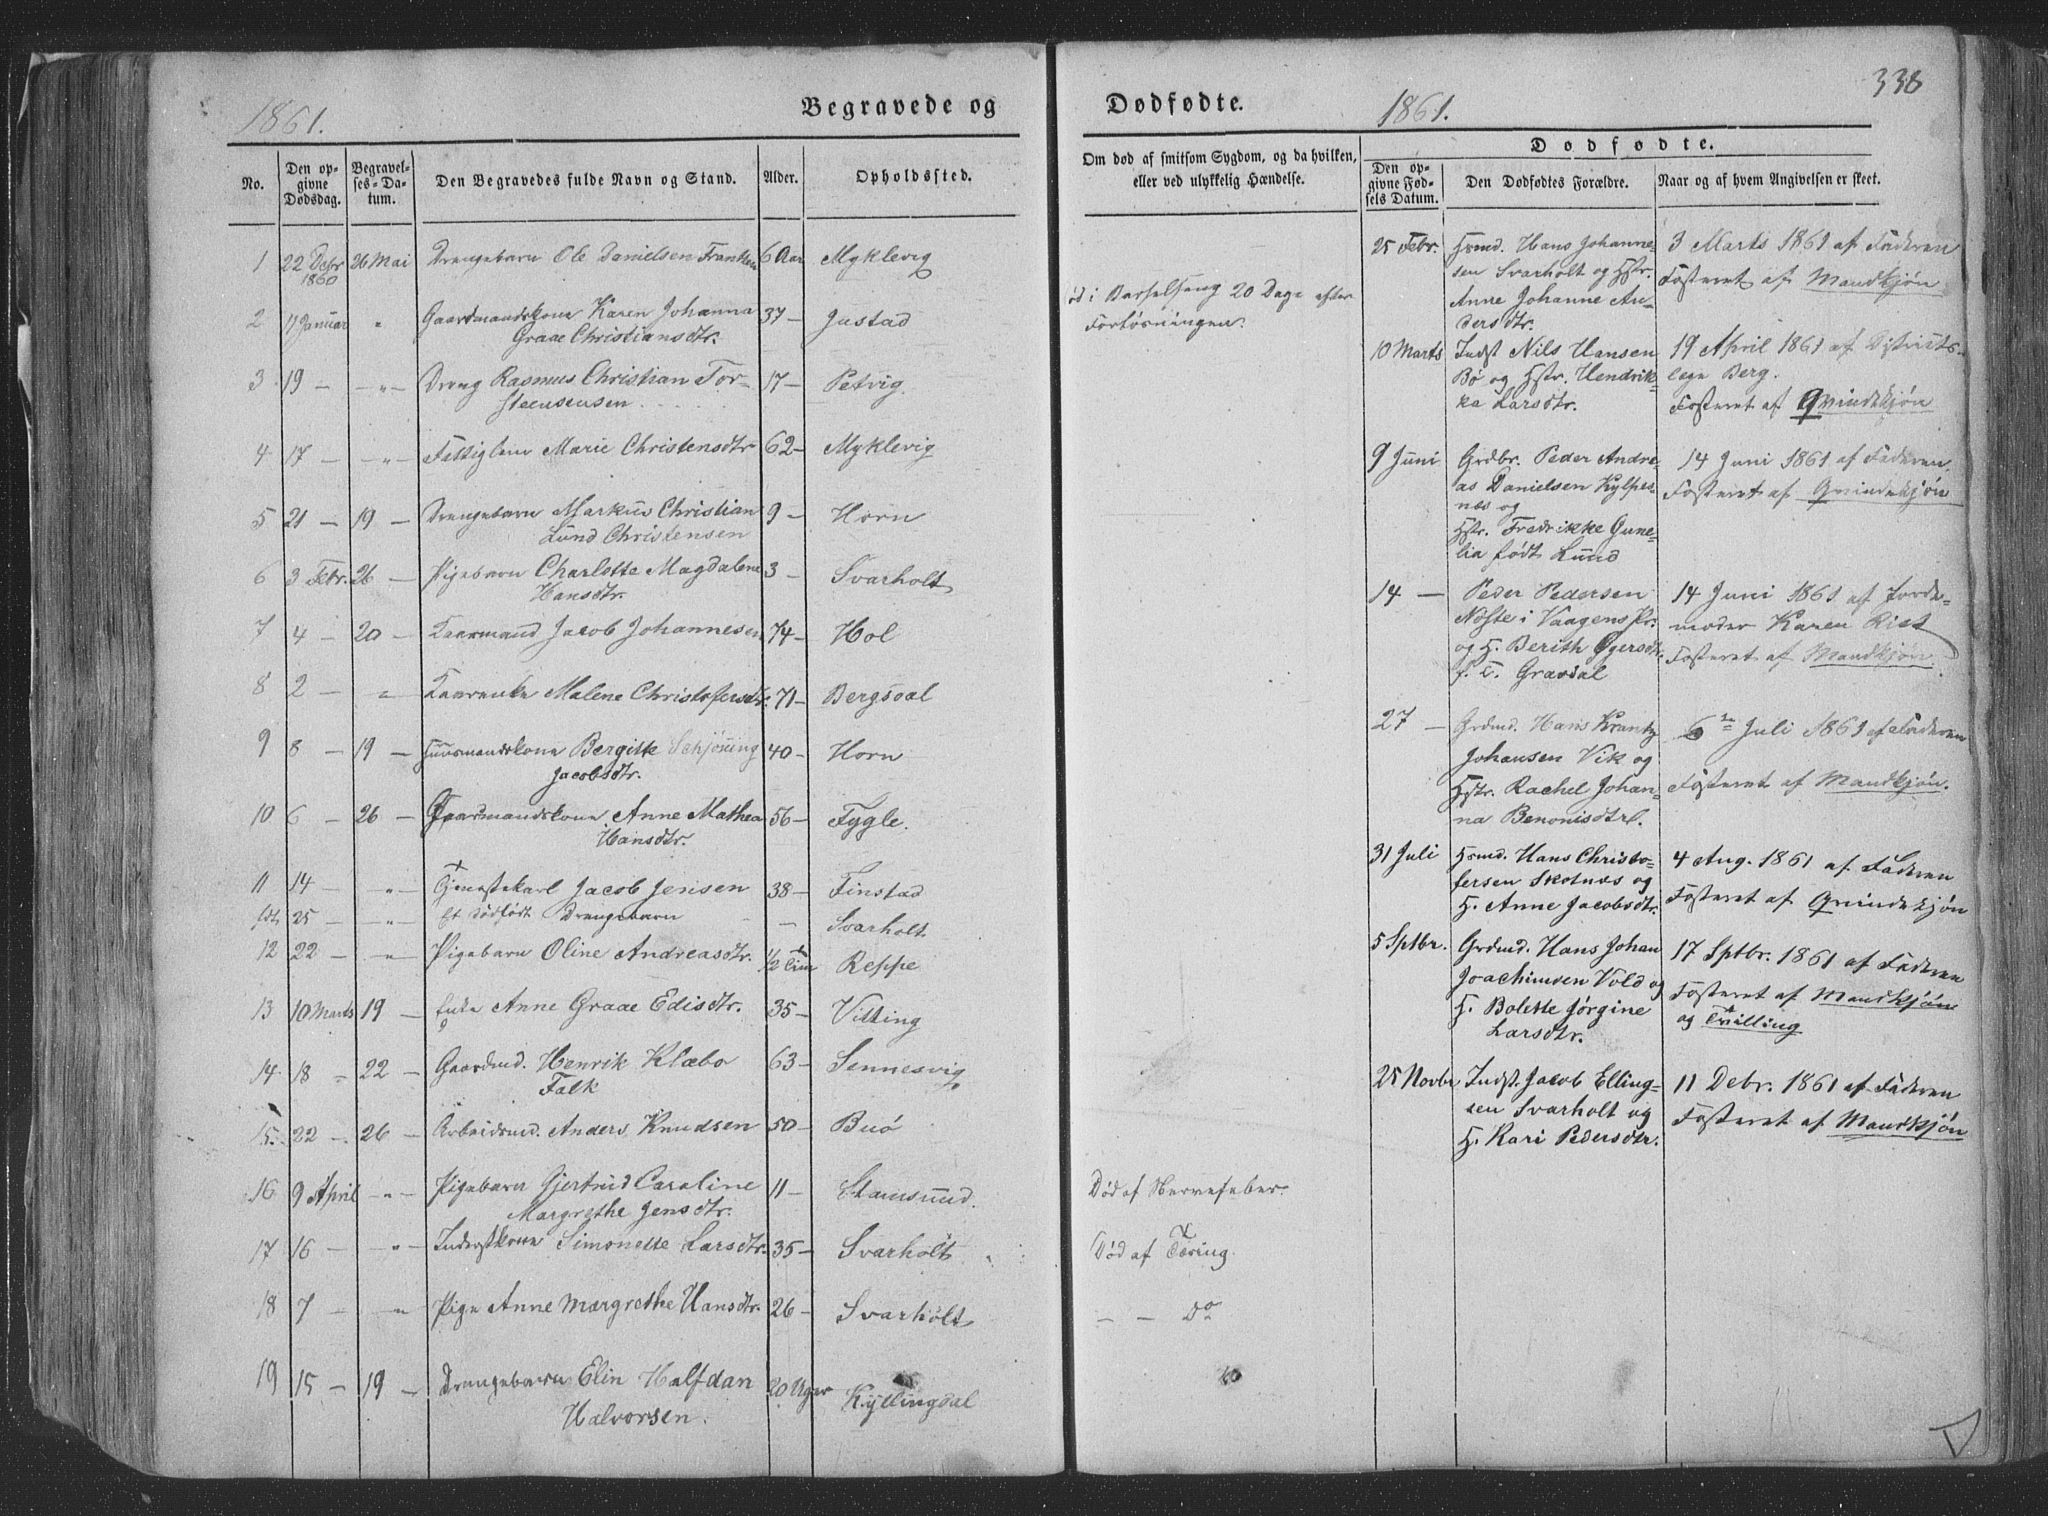 1861.
Begravede og
No.
Den opgivne Dødsdag.
Begravelses-Datum.
Den Begravedes fulde Navn og Stand.
Alder.
Opholdssted.
1 22 Debr 1860 26 Mai Drengebarn Ole Danielsen 6 Aar Myklevig
2 17 Januar " Gaardmandskone Karen Johanna 37 – Justad
Graae Christiansdtr.
3 19 – – " – Dreng Rasmus Christian Tor- 17 – Petvig
steensensen
4 17 – – " – Fattiglem Marie Christensdtr 62 – Myklevig
5 21 – 19 – Drengebarn Markus Christian 9 – Horn
Lund Christensen
6 3 Febr. 26 – Pigebarn Charlotte Magdalene 3 – Svarholt
Hansdtr.
7 4 – 20 – Kaarmand Jacob Johannesen 74 – Hol
8 2 – " Kaarenke Malene Christofersdtr. 71 – Bergsdal
9 8 – 19 – Huusmandskone Bergitte Schjöning 40 – Horn
Jacobsdtr.
10 6 – 26 – Gaardmandskone Anne Mathea 56 – Fygle.
Hansdtr.
11 14 – – " – Tjenestekarl Jacob Jensen 38 – Finstad
fdt. 25 – – " – Et dødfødt Drengebarn – Svarholt
12 22 – – " – Pigebarn Oline Andreasdtr. 1/2 Time Reppe
13 10 Marts 19 – Enke Anne Graae Edisdtr. 35 – Vitting
14 18 – 22 – Gaardmd. Henrik Klæbo 63 – Sennesvig
Falk
15 22 – 26 – Arbeidsmd. Anders Knudsen 50 – Buö
16 9 April – " – Pigebarn Gjertrud Caroline 11 – Stamsund.
Margrethe Jensdtr.
17 16 – – " – Inderstkone Simonette Larsdtr. 35 – Svarholt
18 7 – – " Pige Anne Margrethe Hansdtr. 26 – Svarholt
19 15 – 19 – Drengebarn Elin Halfdan 20 Uger Kyllingdal
Halvorsen.
Dødfødte.
1861.
338
Om død af smitsom Sygdom, og da hvilken,
eller ved ulykkelig Hændelse.
Død i Barselseng 20 Dage efter
Forløsningen.
Død af Nervefeber.
Død af Tæring.
– – Do
Dødfødte.
Den opgivne Fødsels Datum.
Den Dødfødtes Forældre.
Naar og af hvem Angivelsen er skeet.
25 Febr. Hsmd. Hans Johanne- 3 Marts 1861 af Faderen
sen Svarholt og Hstr. Fosteret af Mandkjøn
Anne Johanne An-
dersdtr.
10 Marts Indst Nils Hansen 19 April 1861 af Distrikts-
Bø og Hstr. Hendrik- læge Berg.
ka Larsdtr. Fosteret af Qvindekjøn
9 Juni Grdbr. Peder Andre- 14 Juni 1861 af Faderen.
as Danielsen Kylpes- Fosteret af Qvindekjøn
næs og
Hstr. Fredrikke Gune-
lia født Lund
14 – Peder Pedersen 14 Juni 1861 af Jorde-
Nöste i Vaagens Pr. moder Karen Rist
og H. Berith Ogersdtr. Fosteret af Mandkjøn.
f. T. Gravdal
27 – Grdmd. Hans Krantz 6te Juli 1861 af Faderen
Johansen Vik og Fosteret af Mandkjøn.
Hstr. Rachel Johan-
na Benonisdtr.
31 Juli Hsmd. Hans Christo- 4 Aug. 1861 af Faderen
fersen Skotnæs og Fosteret af Qvindekjøn
H. Anne Jacobsdtr.
5 Sptbr. Grdmd. Hans Johan 17 Sptbr. 1861 af Faderen
Joachimsen Vold og Fosteret af Mandkjøn
H. Bolette Jørgine og Tvilling
Larsdtr.
25 Novbr Indst. Jacob Elling- 11 Debr. 1861 af Faderen
sen Svarholt og Fosteret af Mandkjøn
H. Kari Pedersdtr.